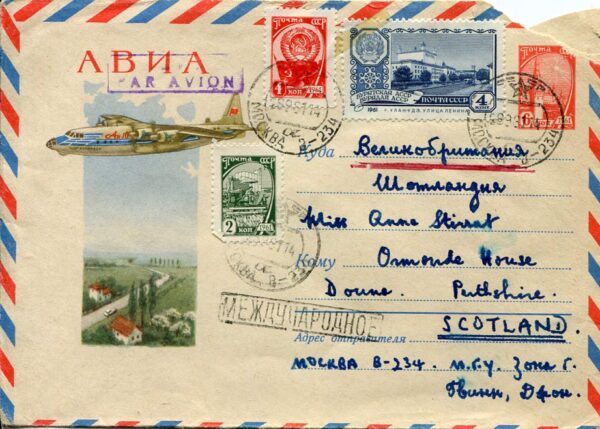 АВИА
PAR AVION
ПОЧТА СССР
4 КОП
1961
БУРЯТСКАЯ АССР
ПОЧТА СССР
4 КОП
1961 Г. УЛАН-УДЭ. УЛИЦА ЛЕНИНА
ПОЧТА СССР
МОСКВА В-234
МОСКВА В-234
Ан-10
Куда Великобритания
Шотландия
ПОЧТА СССР
2 КОП
Miss Anne Stirrat
Кому Ormonde House
Doune. Perthshire.
МЕЖДУНАРОДНОЕ
SCOTLAND.
Адрес отправителя
МОСКВА В-234. М.Г.У. Зона Г.
Гвинн, Джон.